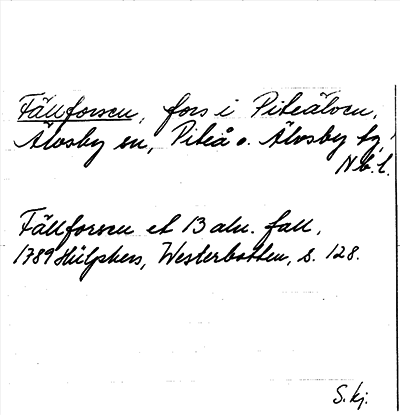 Fällforsen, fors i Piteälven,
Älvsby sn, Piteå o. Älvsby tg,
N.b.l.
Fällforsen et 13 aln. fall,
1789 Hülphers, Westerbotten, s. 128.
S. kj.